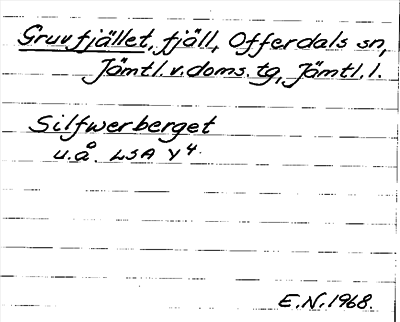 Gruvfjället, fjäll, Offerdals sn,
Jämtl. v. doms. tg, Jämtl. l.
Silfwerberget
u.å. LSA Y4.
E.N. 1968.